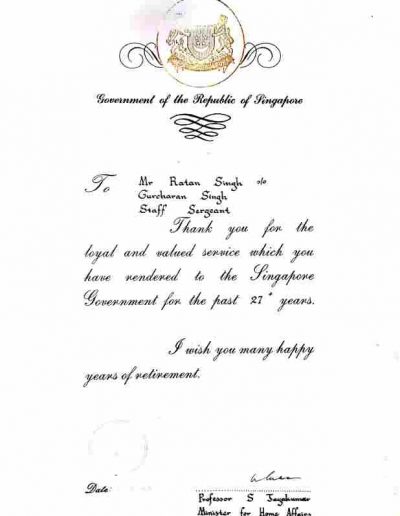 Government of the Republic of Singapore
To
Mr Ratan Singh s/o
Gurcharan Singh
Staff Sergeant
Thank you for the
loyal and valued service which you
have rendered to the Singapore
Government for the past 27 years.
I wish you many happy
years of retirement.
Date
Professor S Jayakumar
Minister for Home Affairs